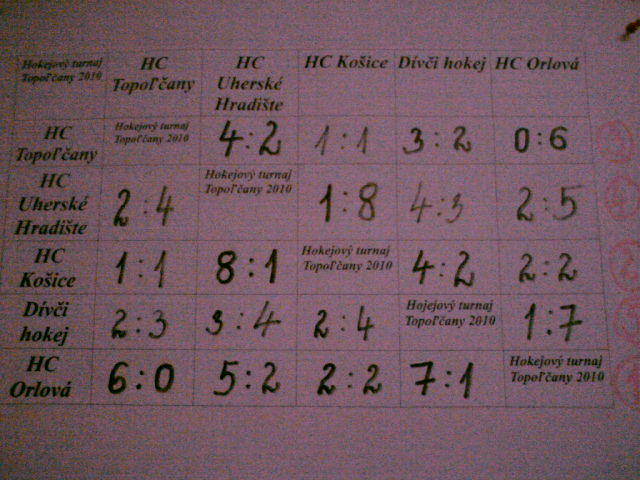 Hokejový turnaj
Topoľčany 2010
HC
Topoľčany
HC
Uherské
Hradište
HC Košice
Dívči hokej
HC Orlová
HC
Topoľčany
Hokejový turnaj
Topoľčany 2010
4:2
1:1
3:2
0:6
HC
Uherské
Hradište
2:4
Hokejový turnaj
Topoľčany 2010
1:8
4:3
2:5
HC
Košice
1:1
8:1
Hokejový turnaj
Topoľčany 2010
4:2
2:2
Dívči
hokej
2:3
3:4
2:4
Hojejový turnaj
Topoľčany 2010
1:7
HC
Orlová
6:0
5:2
2:2
7:1
Hokejový turnaj
Topoľčany 2010